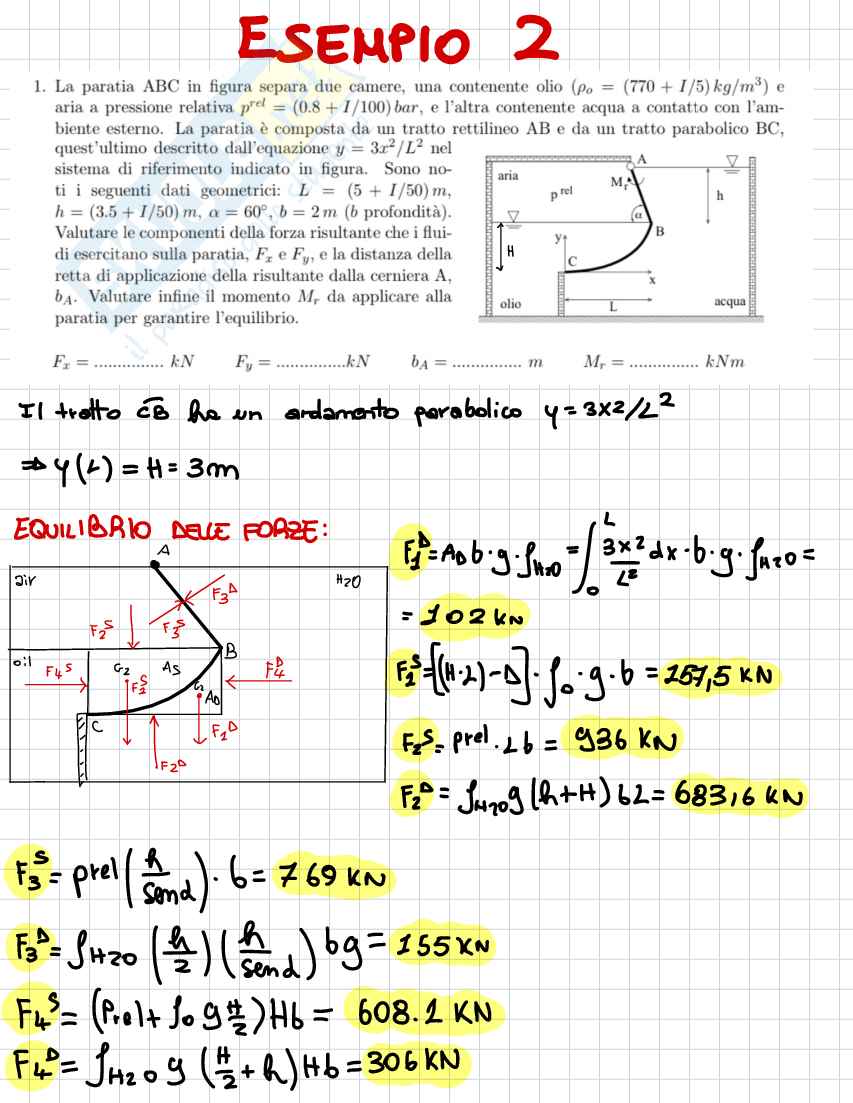 ESEMPIO 2
1. La paratia ABC in figura separa due camere, una contenente olio (ρₒ = (770 + I/5) kg/m³) e
aria a pressione relativa pʳᵉˡ = (0.8 + I/100) bar, e l'altra contenente acqua a contatto con l'am-
biente esterno. La paratia è composta da un tratto rettilineo AB e da un tratto parabolico BC,
quest'ultimo descritto dall'equazione y = 3x²/L² nel
sistema di riferimento indicato in figura. Sono no-
ti i seguenti dati geometrici: L = (5 + I/50) m,
h = (3.5 + I/50) m, α = 60°, b = 2 m (b profondità).
Valutare le componenti della forza risultante che i flui-
di esercitano sulla paratia, Fₓ e F_y, e la distanza della
retta di applicazione della risultante dalla cerniera A,
b_A. Valutare infine il momento Mᵣ da applicare alla
paratia per garantire l'equilibrio.
A
aria
Mᵣ
p rel
h
α
B
H
y
C
x
olio
L
acqua
Fₓ = ............... kN F_y = ...............kN b_A = ............... m Mᵣ = ............... kNm
Il tratto CB ha un andamento parabolico y = 3x2/L²
⇒ y(L) = H = 3m
EQUILIBRIO DELLE FORZE:
A
air
H2O
F₃ᴰ
F₂ˢ
F₃ˢ
B
oil
F₄ˢ
G2
F₁ˢ
AS
F₄ᴰ
G1
AD
C
F₁ᴰ
F₂ᴰ
F₁ᴰ = A_D b · g · ρ_H2O = ∫₀ᴸ 3x²/L² dx · b · g · ρ_H2O =
= 102 kN
F₁ˢ = [(H·L) - A_D] · ρₒ · g · b = 157,5 KN
F₂ˢ = prel · Lb = 936 KN
F₂ᴰ = ρ_H2O g (h+H) bL = 683,6 KN
F₃ˢ = prel (h/senα) · b = 769 KN
F₃ᴰ = ρ_H2O (h/2) (h/senα) bg = 155 KN
F₄ˢ = (Prel + ρₒ g H/2) Hb = 608.1 KN
F₄ᴰ = ρ_H2O g (H/2 + h) Hb = 306 KN